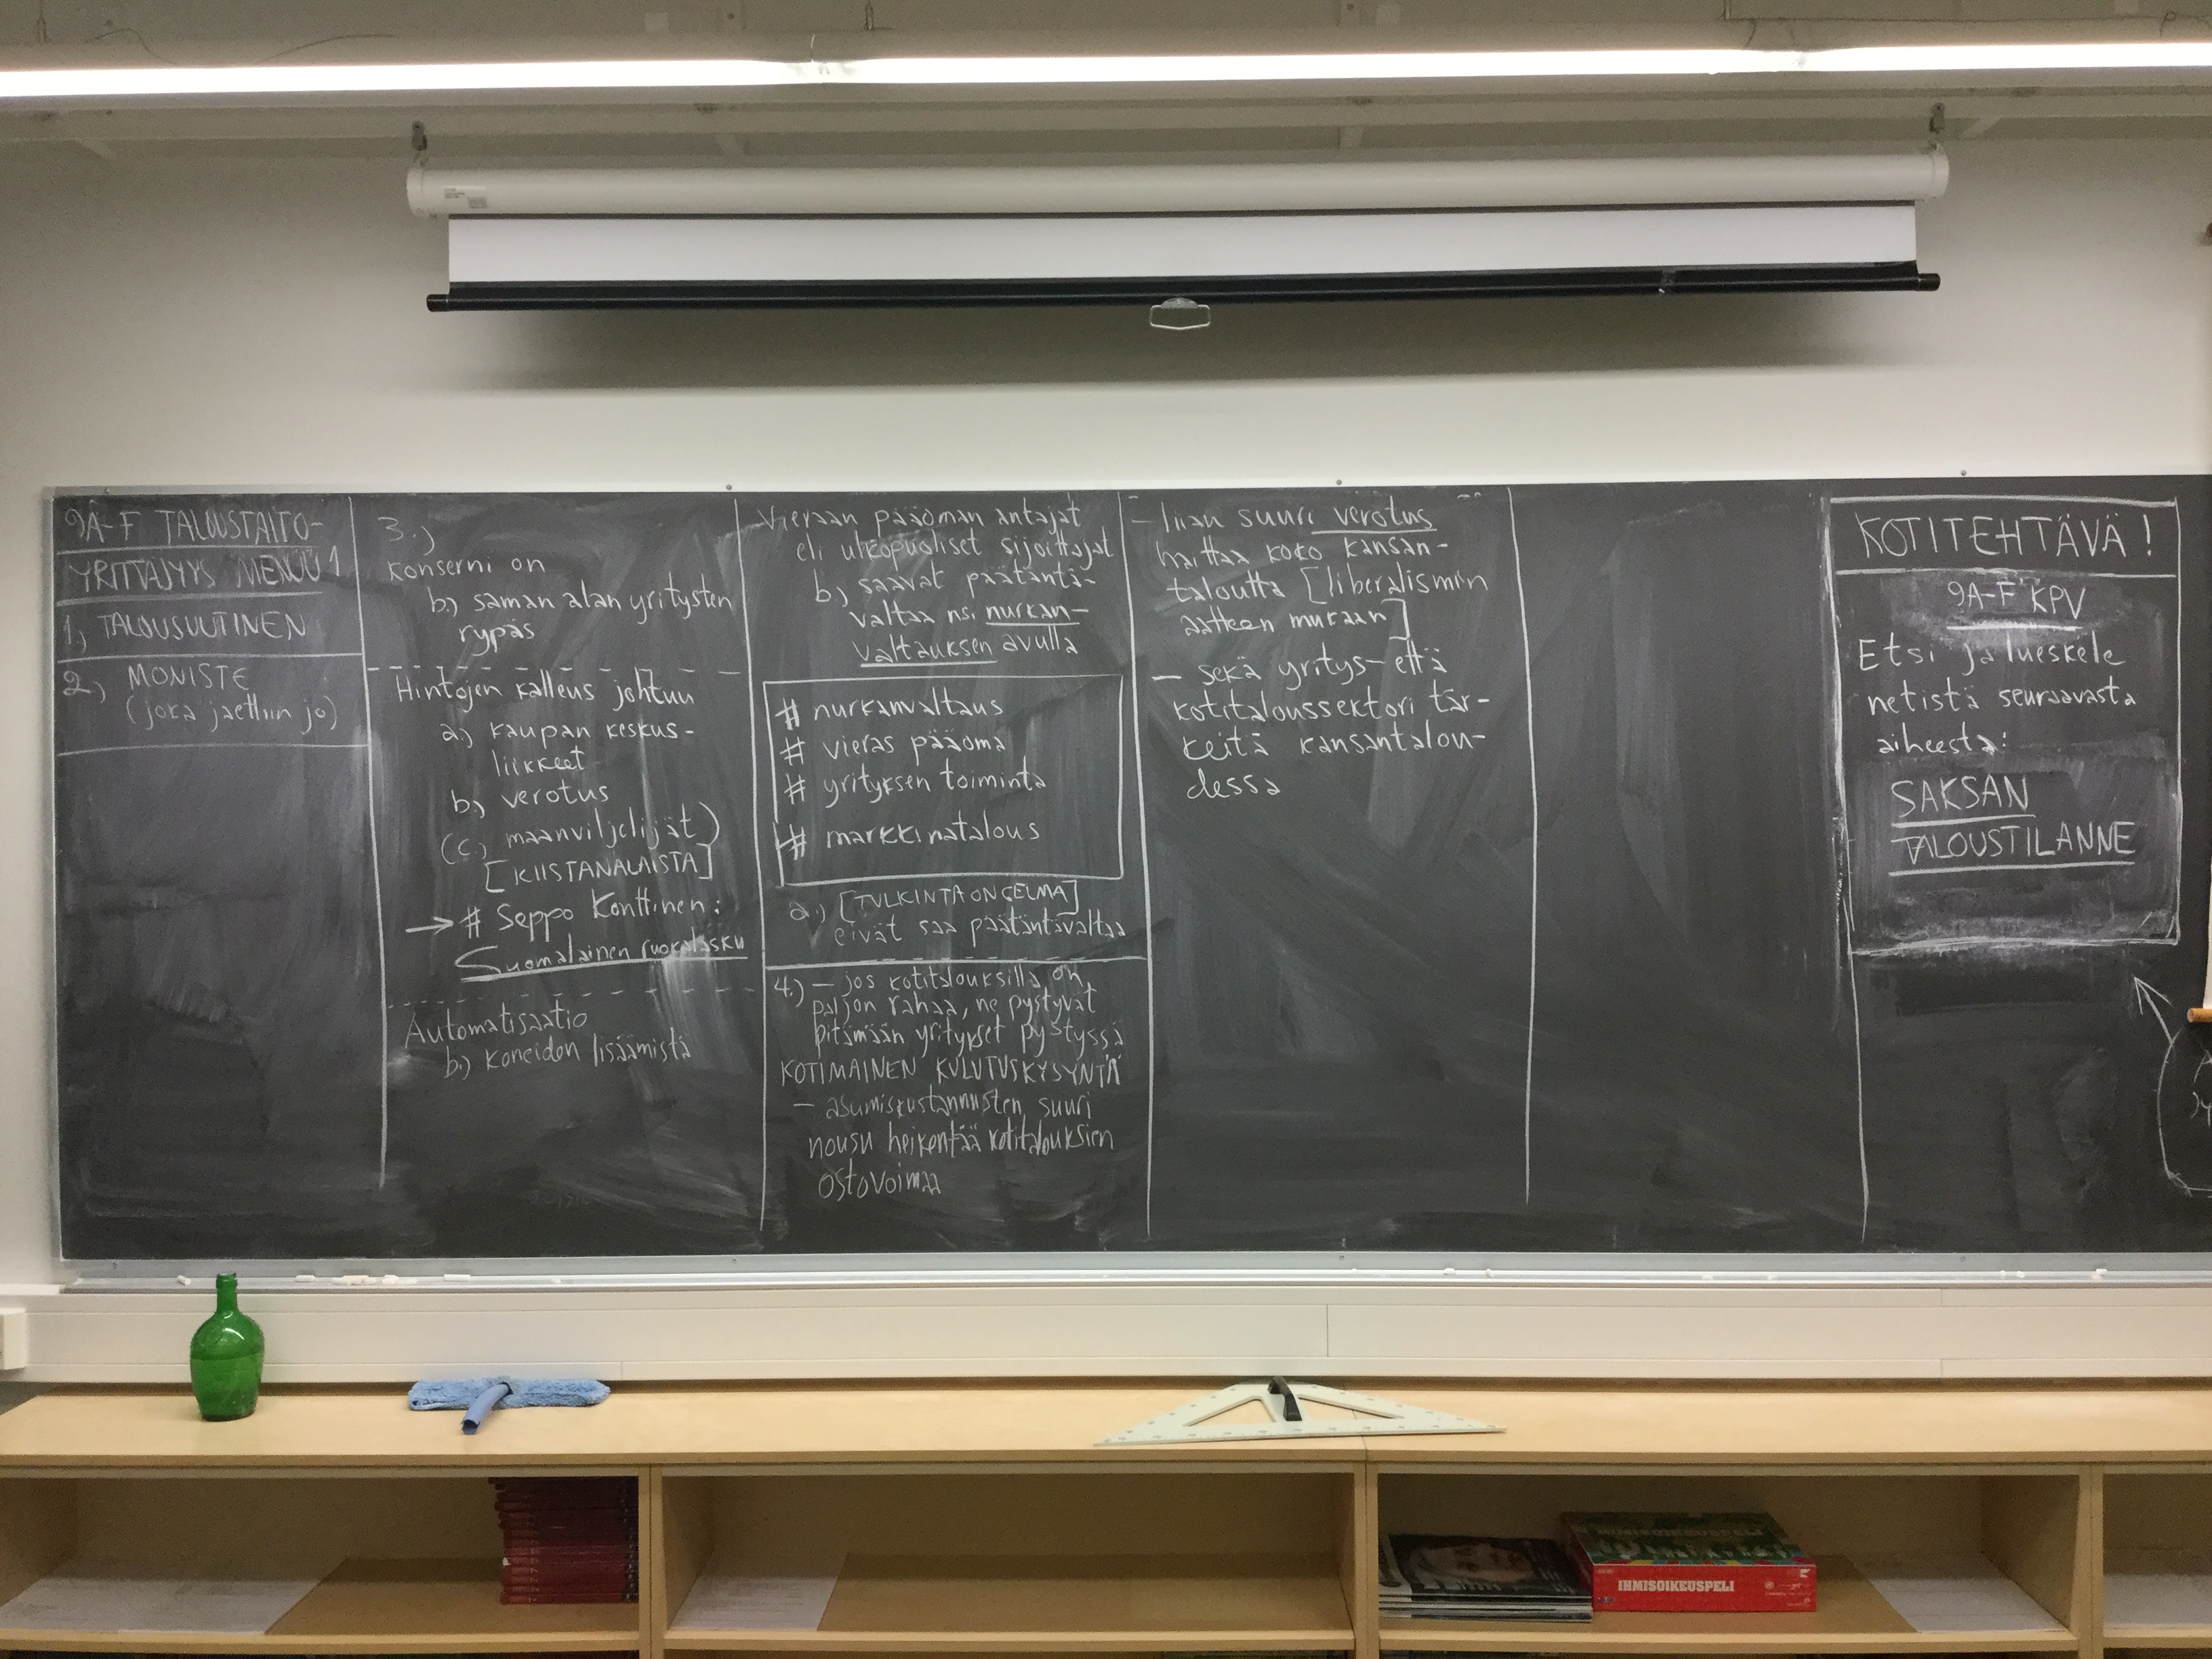 9A-F TALOUSTAITO-
YRITTÄJYYS MENUU 1
1, TALOUSUUTINEN
2.) MONISTE
(joka jaettiin jo)
3.)
Konserni on
b.) saman alan yritysten
rypäs
Hintojen kalleus johtuu
a.) kaupan keskus-
liikkeet
b.) verotus
(c.) maanviljelijät)
[KIISTANALAISTA]
→ # Seppo Konttinen:
Suomalainen ruokalasku
Automatisaatio
b.) koneiden lisäämistä
Vieraan pääoman antajat
eli ulkopuoliset sijoittajat
b.) saavat päätäntä-
valtaa ns. nurkan-
valtauksen avulla
# nurkanvaltaus
# vieras pääoma
# yrityksen toiminta
# markkinatalous
a.) [TULKINTAONGELMA]
eivät saa päätäntävaltaa
4.) – jos kotitalouksilla on
paljon rahaa, ne pystyvät
pitämään yritykset pystyssä
KOTIMAINEN KULUTUSKYSYNTÄ
– asumiskustannusten suuri
nousu heikentää kotitalouksien
ostovoimaa
– liian suuri verotus
haittaa koko kansan-
taloutta [liberalismin
aatteen mukaan]
– sekä yritys- että
kotitaloussektori tär-
keitä kansantalou-
dessa
KOTITEHTÄVÄ!
9A-F KPV
Etsi ja lueskele
netistä seuraavasta
aiheesta:
SAKSAN
TALOUSTILANNE
IHMISOIKEUSPELI